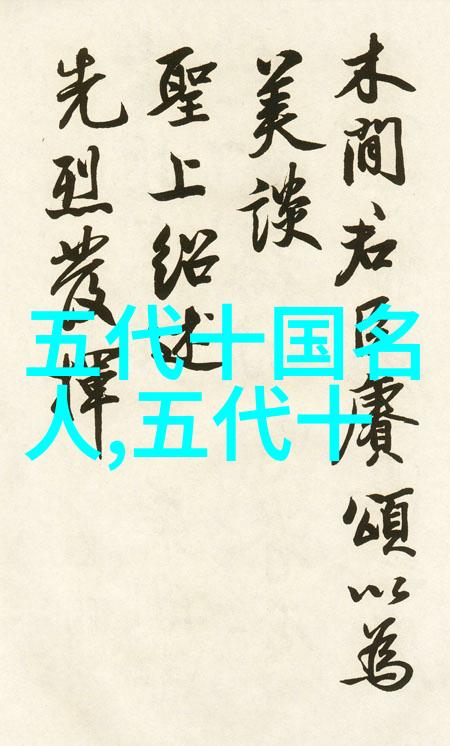 木間君臣賡頌以為
美談
聖上紹述
先烈發揮
五代十国名
人,五代十